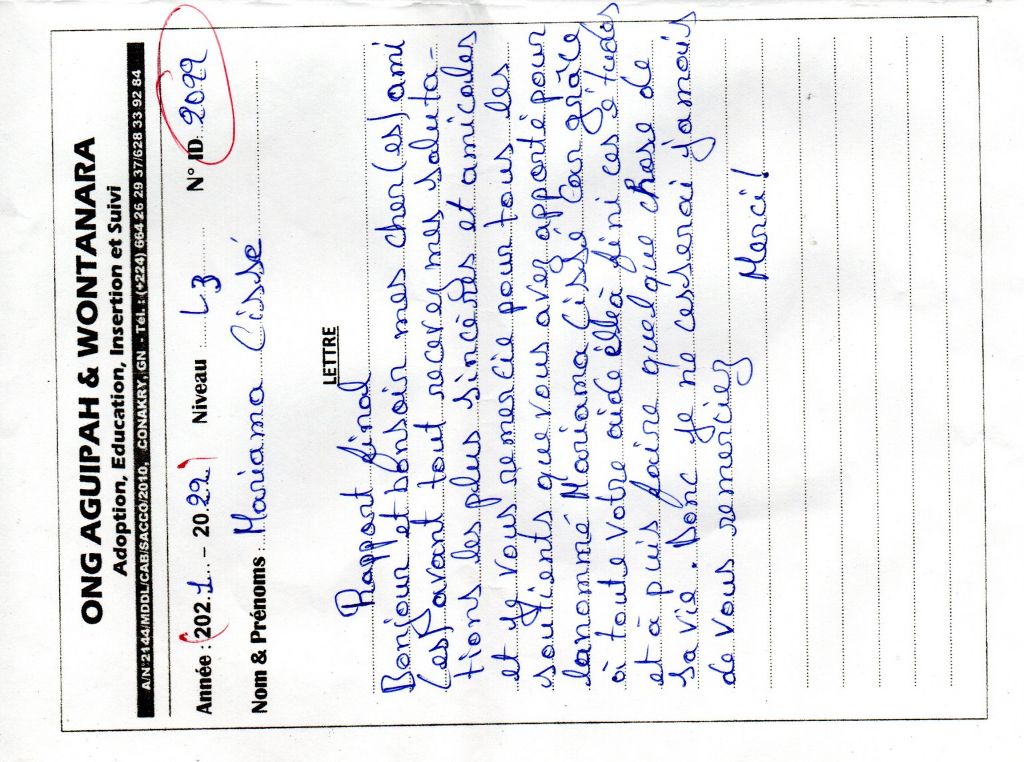 ONG AGUIPAH & WONTANARA
Adoption, Education, Insertion et Suivi
A/N°2144/MDDL/CAB/SACCO/2010, CONAKRY, GN - Tél. : (+224) 664 26 29 37/628 33 92 84
Année : 2021 - 2022 Niveau L3 N° ID 2099
Nom & Prénoms : Mariama Cissé
LETTRE
Rapport final
Bonjour et bonsoir mes cher(es) ami
(es) avant tout recevez mes saluta-
tions les plus sincères et amicales
et je vous remercie pour tous les
soutients que vous avez apporté pour
lanommé Mariama Cissé Car grâce
à toute votre aide elle à fini ces études
et à puis faire quelque chose de
sa vie. Donc je ne cesserai jamais
de vous remerciez
Merci!